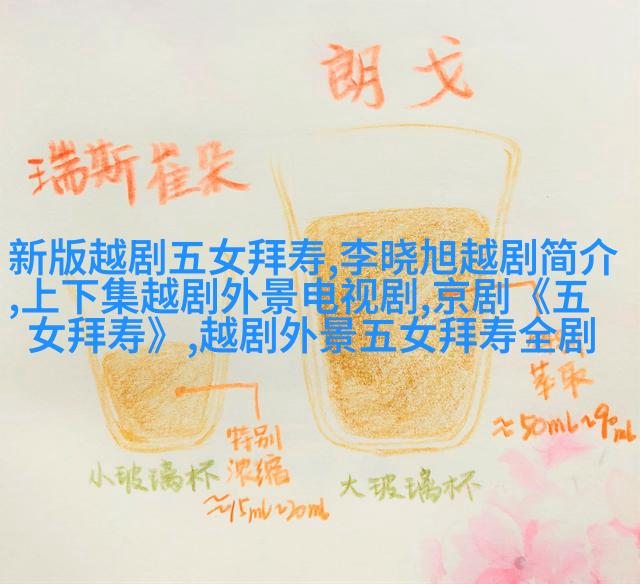 朗戈
瑞斯崔朵
新版越剧五女拜寿,李晓旭越剧简介
,上下集越剧外景电视剧,京剧《五
女拜寿》,越剧外景五女拜寿全剧
萃取
≈50ml~90ml
特别
浓缩
≈15ml~20ml
小玻璃杯
大玻璃杯